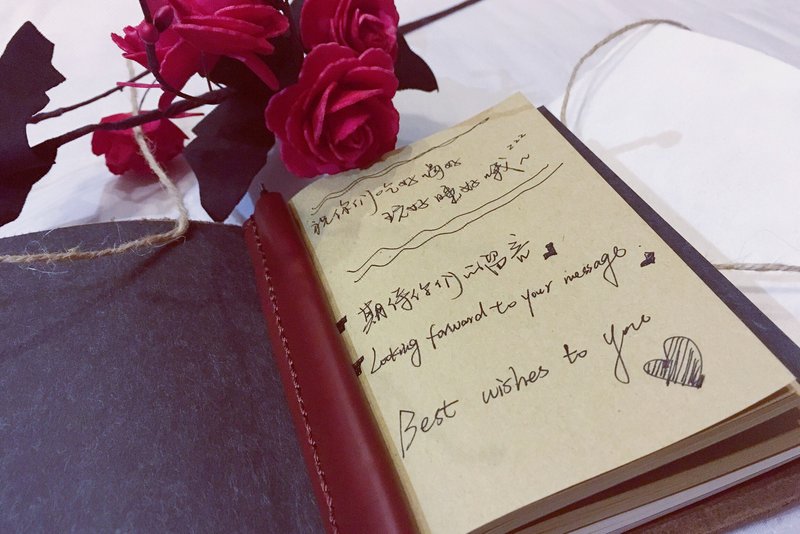 祝你们吃好喝好
玩好睡好哦~ zzz
期待你们的留言
Looking forward to your message.
Best wishes to you